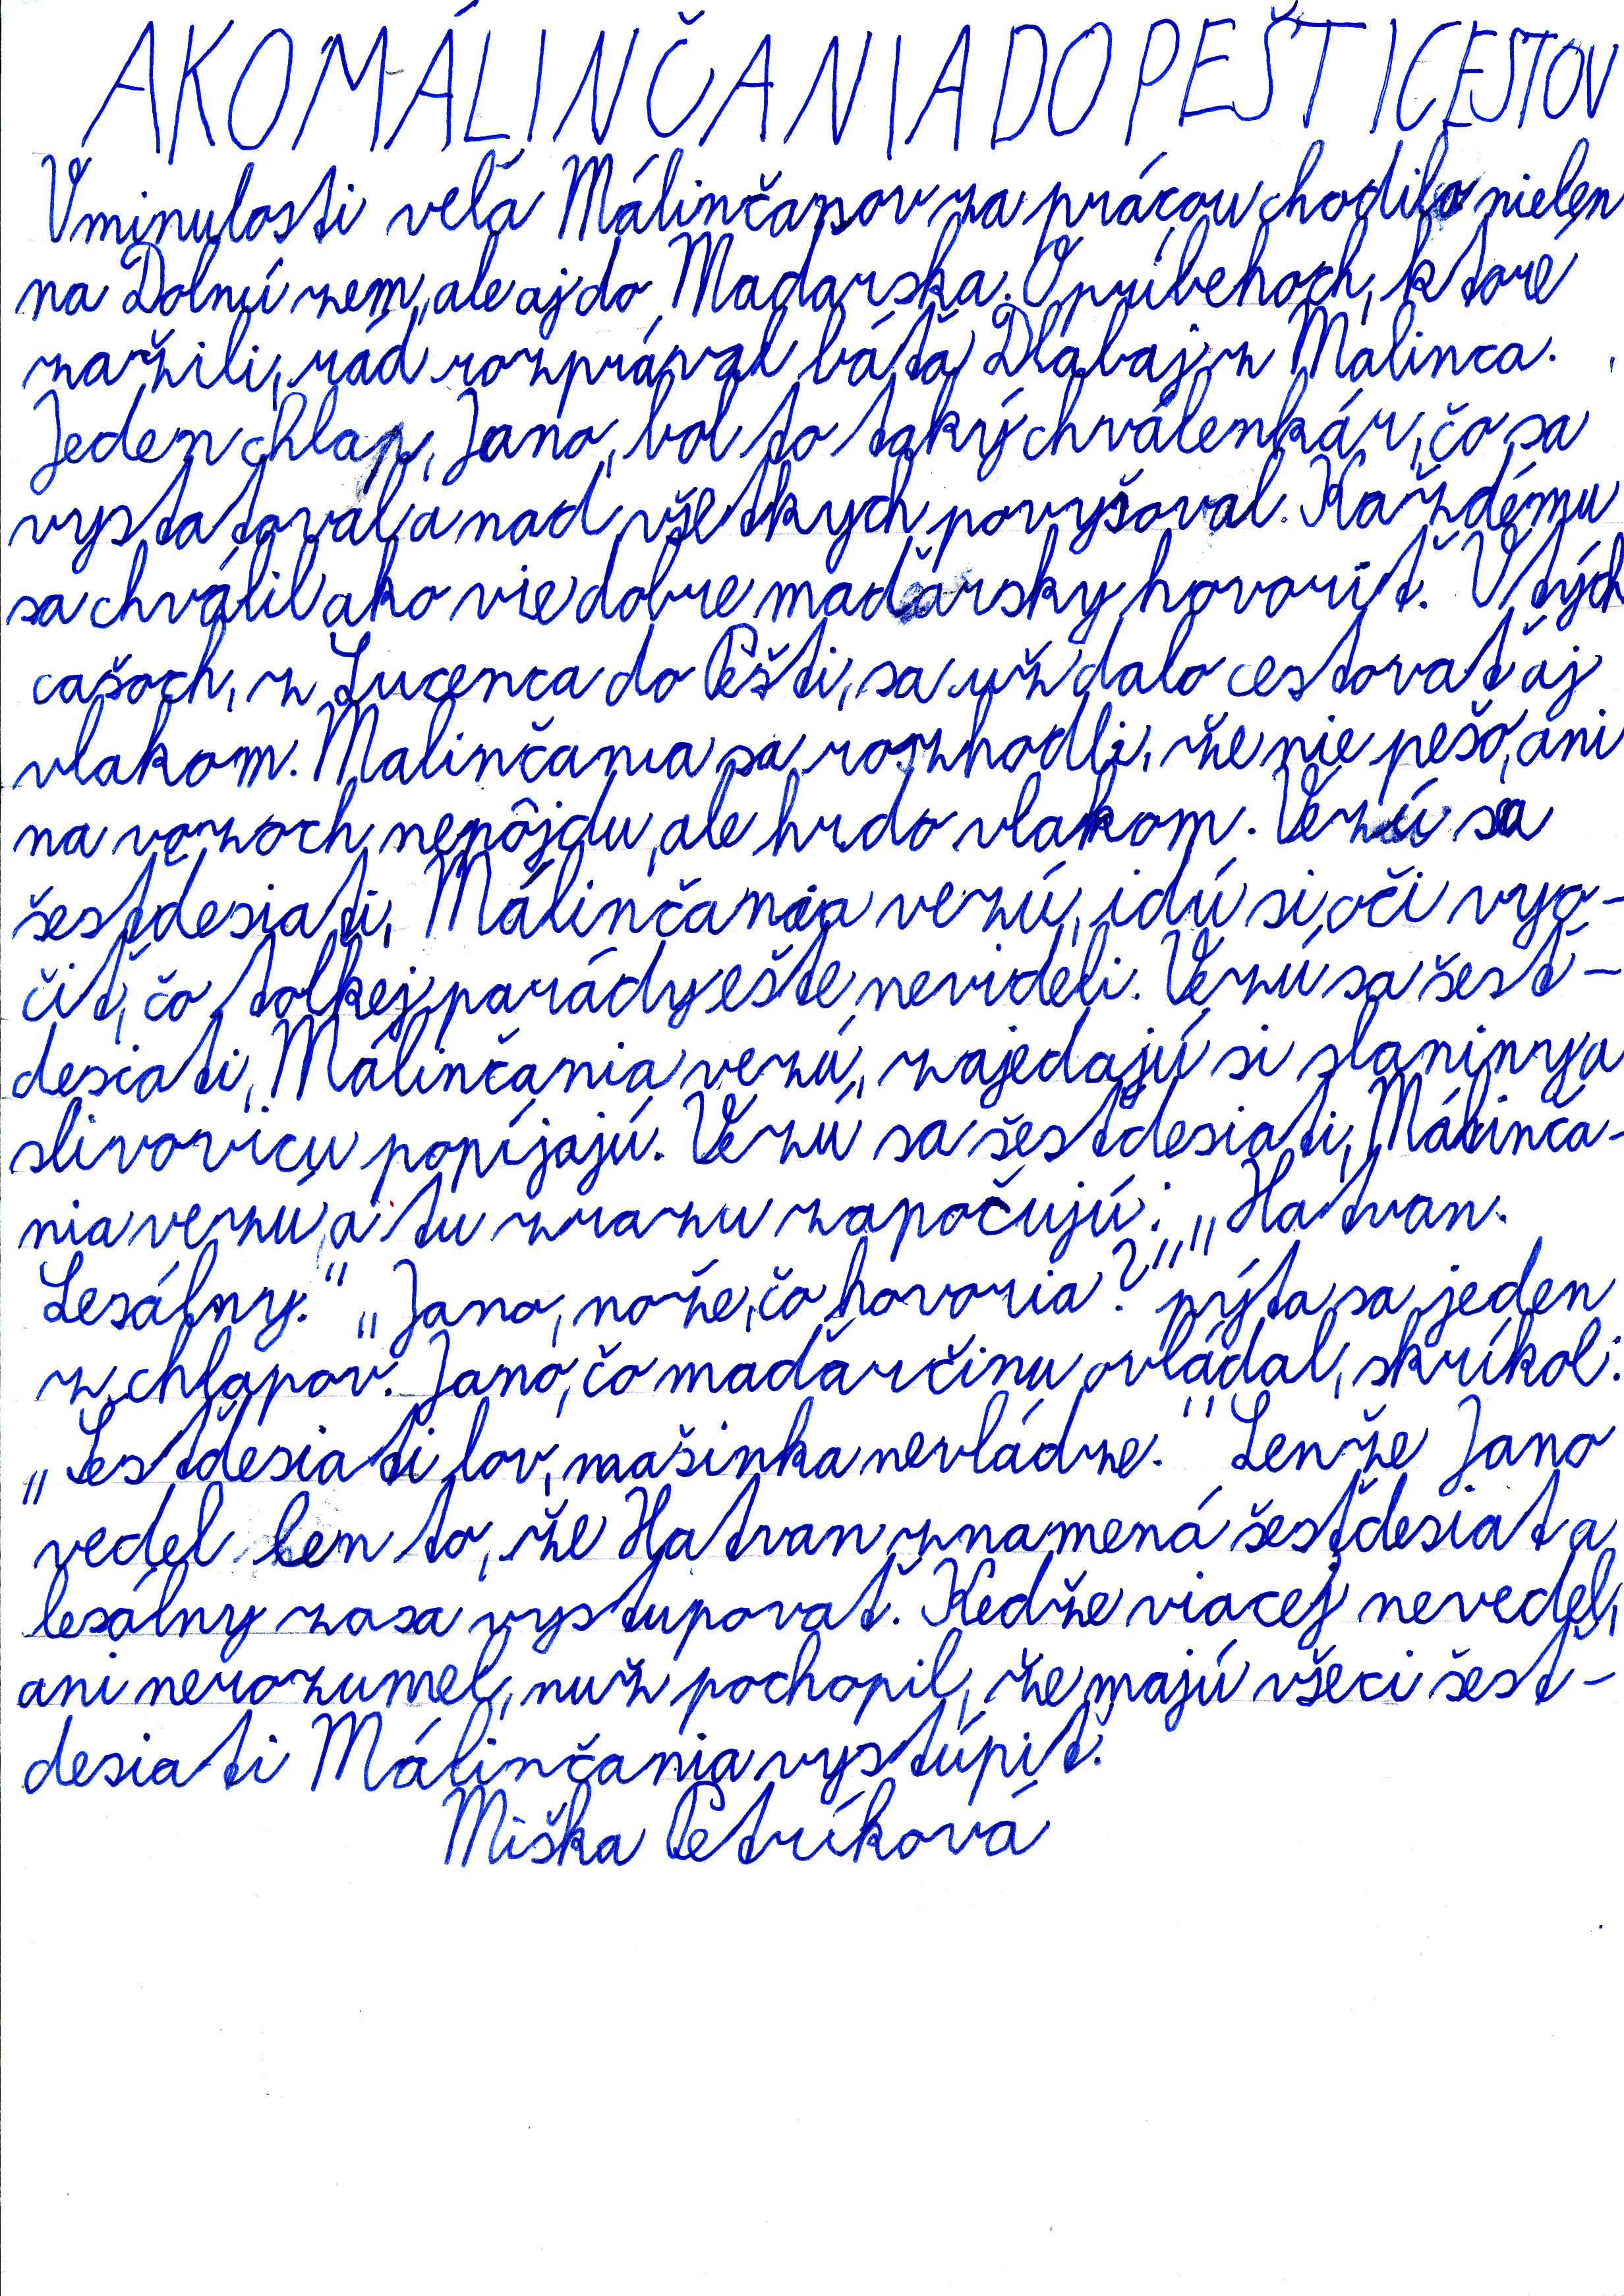 AKO MÁLINČANIA DO PEŠTI CESTOV
V minulosti veľa Málinčanov za prácou chodilo nielen
na Dolnú zem, ale aj do Madarska. O príbehoch, ktoré
zažili, rád rozprával báťa Dlabaj z Malinca.
Jeden chlap, Jano, bol to taký chválenkár, čo sa
vystatoval a nad všetkych povyšoval. Každému
sa chválil ako vie dobre maďarsky hovoriť. V tých
cašoch, z Lucenca do Pešti, sa už dalo cestovať aj
vlakom. Malinčania sa rozhodli, že nie pešo, ani
na vozoch nepôjdu, ale hrdo vlakom. Vezú sa
šesťdesiati, Málinčania vezú, idú si oči vyo-
čiť, čo tolkej parády ešte nevideli. Vezú sa šesť-
desiati, Málinčania vezú, zajedajú si slaniny a
slivovicu popíjajú. Vezú sa šesťdesiati, Málinča-
nia vezú, a tu zrazu započujú: „Hatvan.
Lesálny." „Jano, nože, čo hovoria?" pýta sa jeden
z chlapov. Jano, čo maďarčinu ovládal, skríkol:
„Šesťdesiati lov, mašinka nevládze." Lenže Jano
vedel len to, že Hatvan znamená šesťdesiat a
lesálny zasa vystupovať. Kedže viacej nevedel,
ani nerozumel, nuž pochopil, že majú všeci šesť-
desiati Málinčania vystúpiť.
Miška Petríková